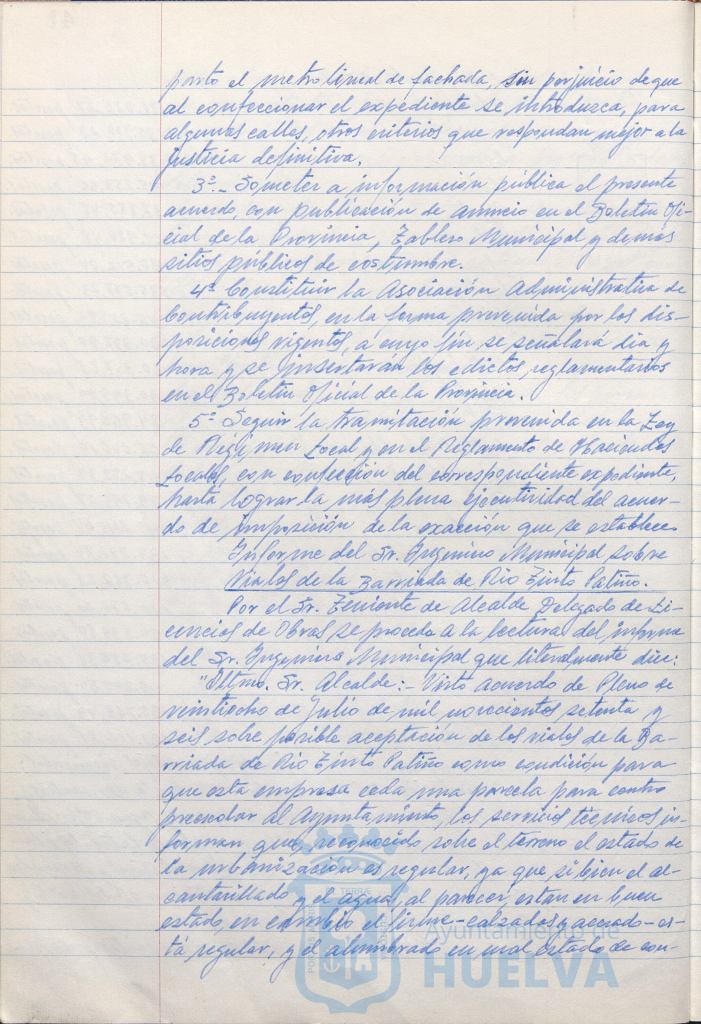 parto el metro lineal de fachada, sin perjuicio de que
al confeccionar el expediente se introduzca, para
algunas calles, otros criterios que respondan mejor a la
justicia definitiva.
3º.- Someter a información pública el presente
acuerdo, con publicación de anuncio en el Boletín Ofi-
cial de la Provincia, Tablero Municipal y demás
sitios públicos de costumbre.
4º Constituir la Asociación Administrativa de
Contribuyentes, en la forma prevenida por las dis-
posiciones vigentes, a cuyo fin se señalará día y
hora y se insertarán los edictos reglamentarios
en el Boletín Oficial de la Provincia.
5º Seguir la tramitación prevenida en la Ley
de Régimen Local y en el Reglamento de Haciendas
Locales, con confección del correspondiente expediente,
hasta lograr la más plena ejecutividad del acuer-
do de imposición de la exacción que se establece.
Informe del Sr. Ingeniero Municipal sobre
Viales de la Barriada de Rio Tinto Patiño.
Por el Sr. Teniente de Alcalde Delegado de Li-
cencias de Obras se procede a la lectura del informe
del Sr. Ingeniero Municipal que literalmente dice:
"Iltmo. Sr. Alcalde:- Visto acuerdo de Pleno de
veintiocho de Julio de mil novecientos setenta y
seis sobre posible aceptación de los viales de la Ba-
rriada de Rio Tinto Patiño como condición para
que esta empresa ceda una parcela para centro
preescolar al Ayuntamiento, los servicios técnicos in-
forman que, reconocido sobre el terreno el estado de
la urbanización es regular, ya que si bien el al-
cantarillado y el agua, al parecer, estan en buen
estado, en cambio el firme-calzadas y acerado-es-
tá regular, y el alumbrado en mal estado de con-
Ayuntamiento de
HUELVA